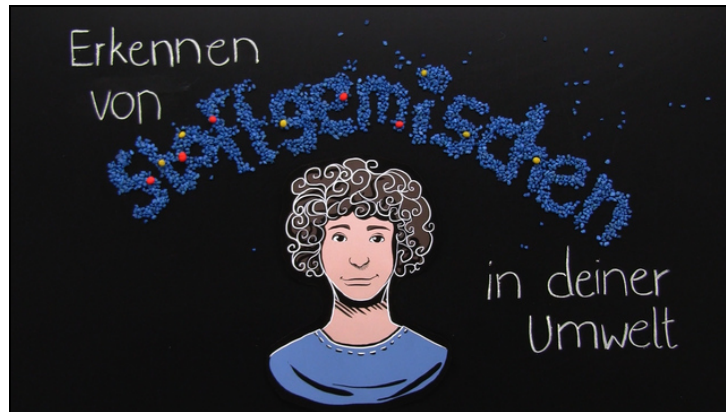 Erkennen
von
Stoffgemischen
in deiner
Umwelt